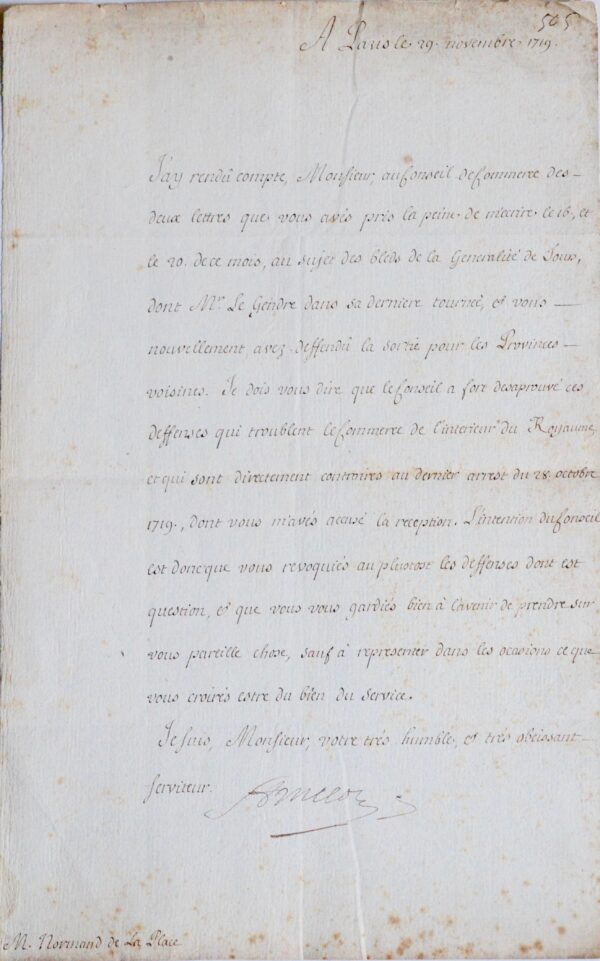 505
A Paris le 29. novembre 1719.
J'ay rendû compte, Monsieur, au Conseil de Commerce des
deux lettres que vous avés pris la peine de m'ecrire le 16, et
le 20. de ce mois, au sujet des bleds de la Generalité de Tours,
dont Mr. Le Gendre dans sa derniere tourneé, et vous
nouvellement avez deffendû la sortie pour les Provinces
voisines. Je dois vous dire que le Conseil a fort desaprouvé ces
deffenses qui troublent le Commerce de l'interieur du Royaume,
et qui sont directement contraires au dernier arrest du 28 octobre
1719., dont vous m'avés accusé la reception. L'intention du Conseil
est donc que vous revoquiés au plustost les deffenses dont est
question, et que vous vous gardiés bien à l'avenir de prendre sur
vous pareille chose, sauf à representer dans les ocasions ce que
vous croirés estre du bien du Service.
Je suis, Monsieur, votre trés humble, et trés obeissant
serviteur.
M. Normand de La Place